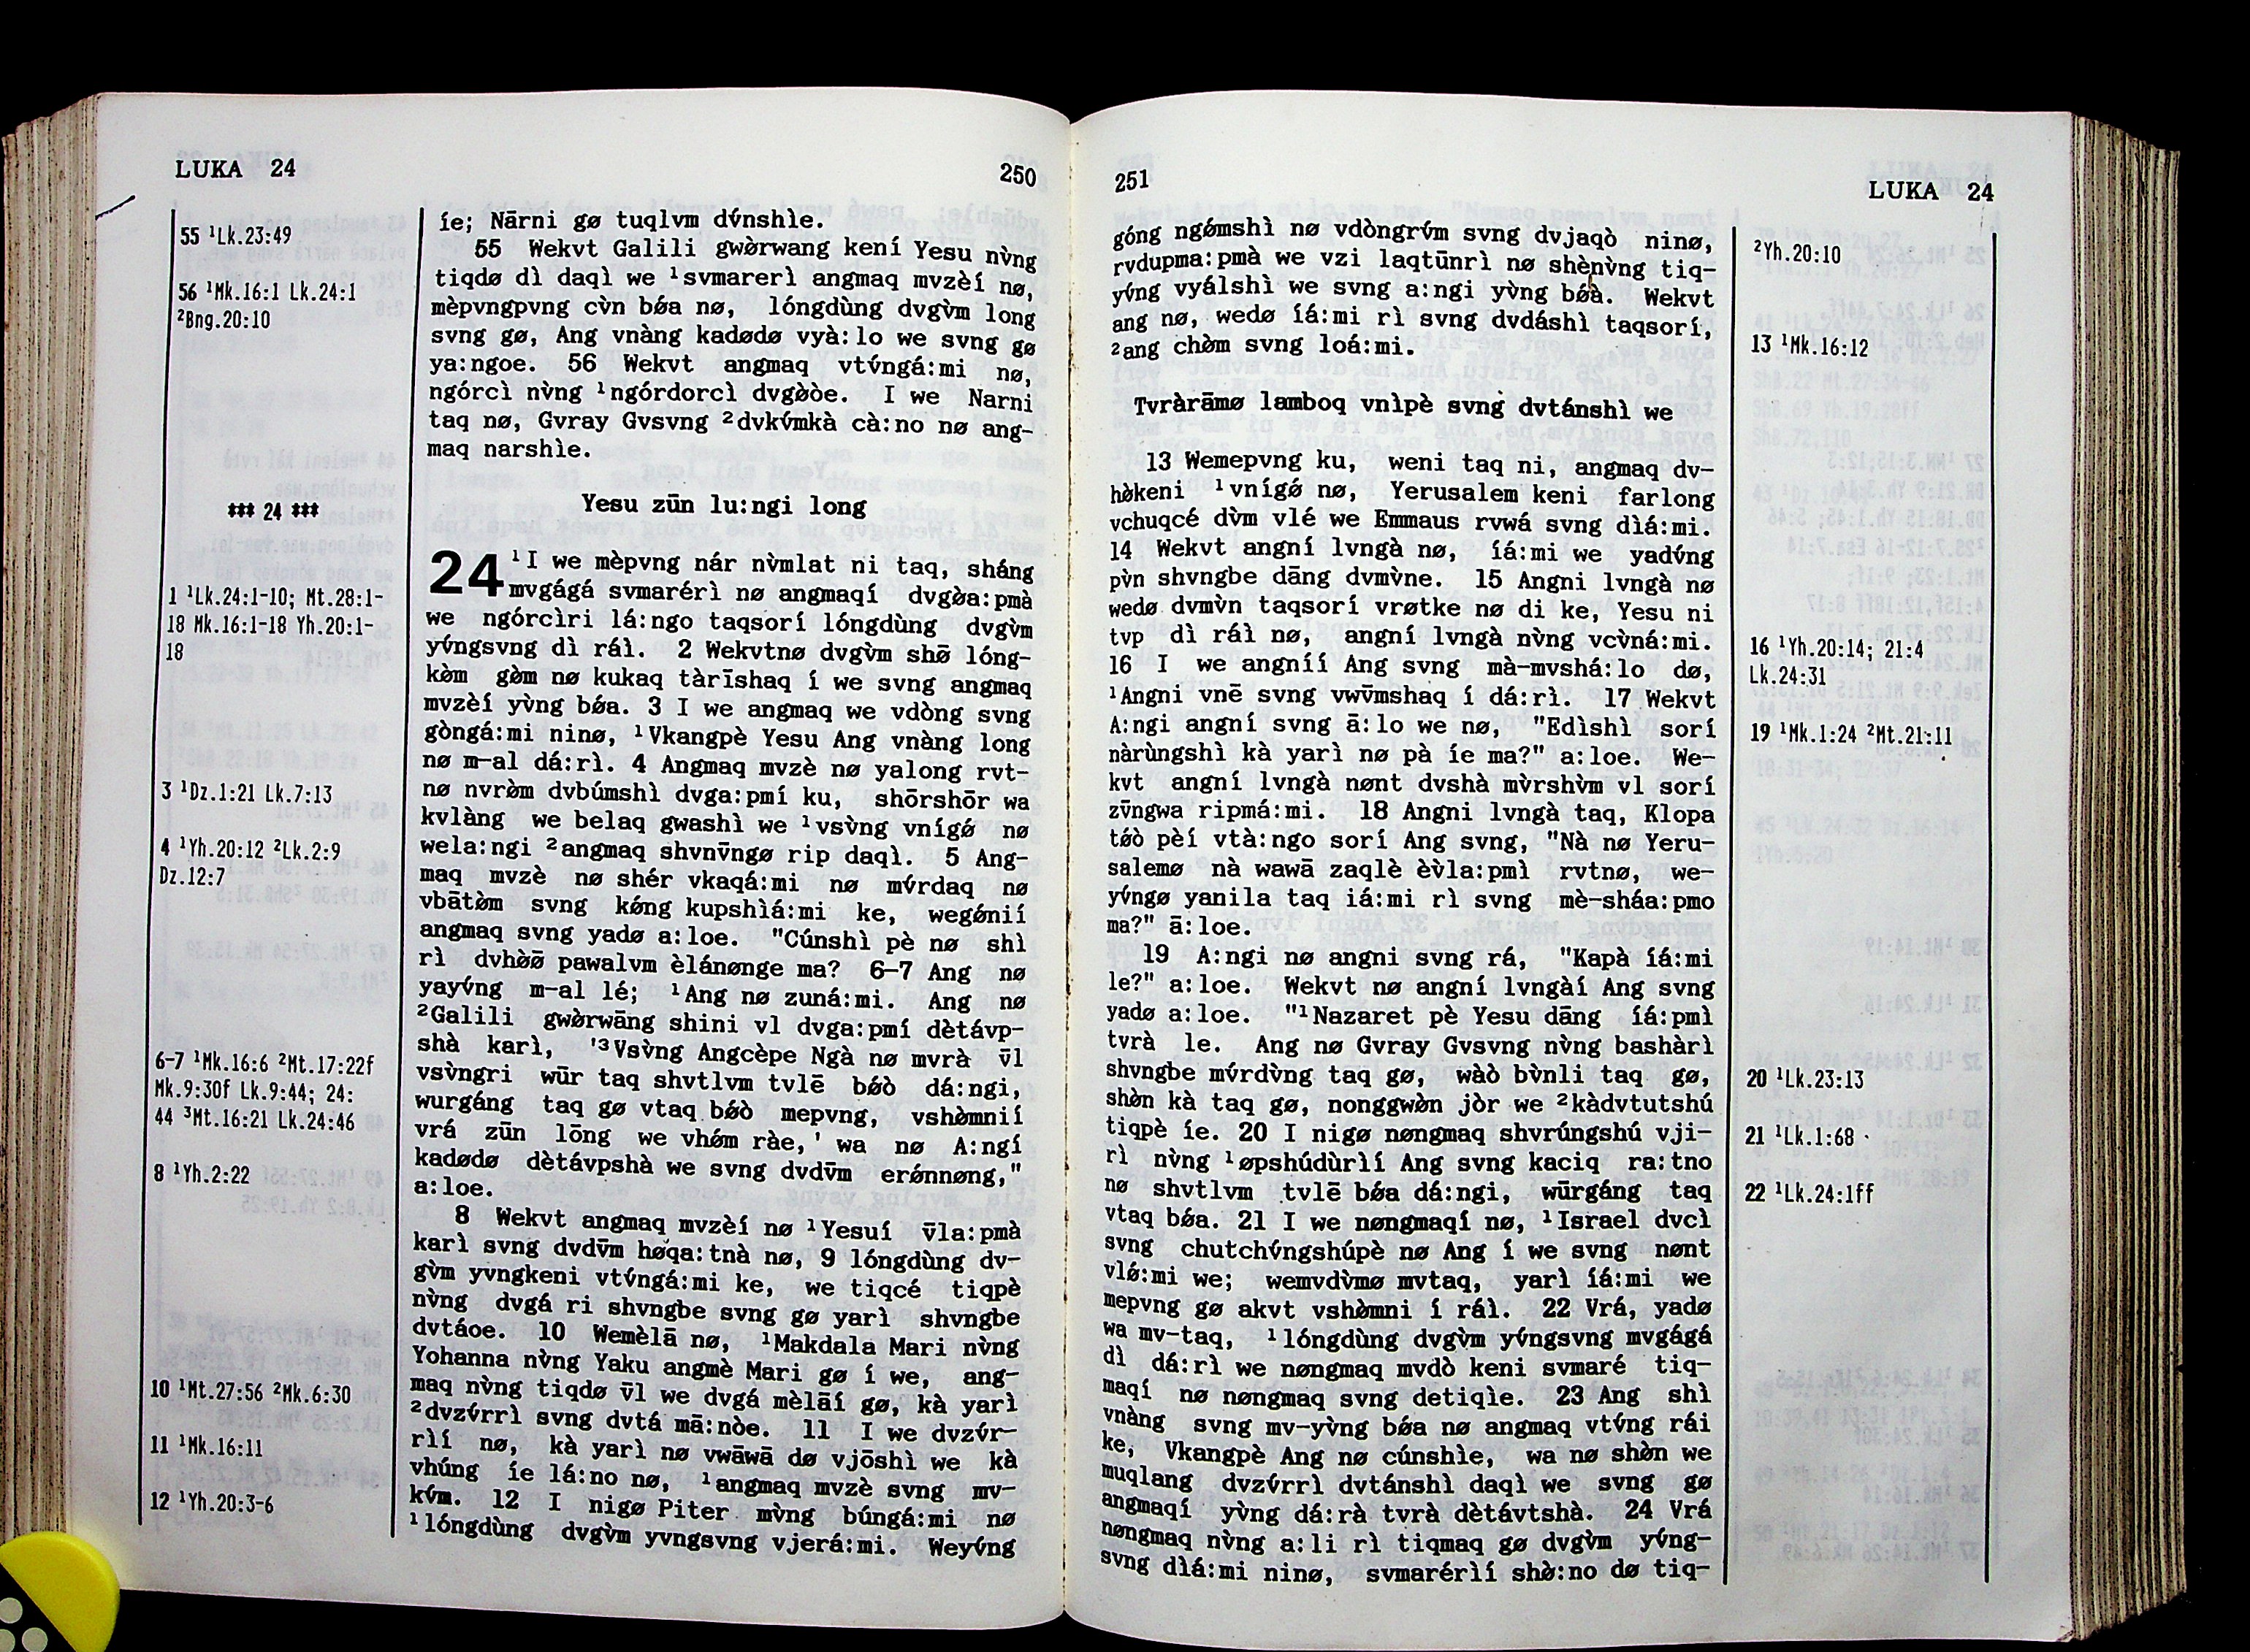 LUKA 24
250
55 ¹Lk.23:49
56 ¹Mk.16:1 Lk.24:1
²Bng.20:10
*** 24 ***
1 ¹Lk.24:1-10; Mt.28:1-
18 Mk.16:1-18 Yh.20:1-
18
3 ¹Dz.1:21 Lk.7:13
4 ¹Yh.20:12 ²Lk.2:9
Dz.12:7
6-7 ¹Mk.16:6 ²Mt.17:22f
Mk.9:30f Lk.9:44; 24:
44 ³Mt.16:21 Lk.24:46
8 ¹Yh.2:22
10 ¹Mt.27:56 ²Mk.6:30
11 ¹Mk.16:11
12 ¹Yh.20:3-6
íe; Nārni gø tuqlvm dv́nshìe.
55 Wekvt Galili gwø̀rwang kení Yesu nv̀ng
tiqdø dì daqì we ¹svmarerì angmaq mvzèí nø,
mèpvngpvng cv̀n bǿa nø, lóngdùng dvgv̀m long
svng gø, Ang vnàng kadødø vyà:lo we svng gø
ya:ngoe. 56 Wekvt angmaq vtv́ngá:mi nø,
ngórcì nv̀ng ¹ngórdorcì dvgø̀òe. I we Narni
taq nø, Gvray Gvsvng ²dvkv́mkà cà:no nø ang-
maq narshìe.
Yesu zūn lu:ngi long
24 ¹I we mèpvng nár nv̀mlat ni taq, sháng
mvgágá svmarérì nø angmaqí dvgø̀a:pmà
we ngórcìri lá:ngo taqsorí lóngdùng dvgv̀m
yv́ngsvng dì ráì. 2 Wekvtnø dvgv̀m shø̄ lóng-
kø̀m gø̀m nø kukaq tàrīshaq í we svng angmaq
mvzèí yv̀ng bǿa. 3 I we angmaq we vdòng svng
gòngá:mi ninø, ¹Vkangpè Yesu Ang vnàng long
nø m-al dá:rì. 4 Angmaq mvzè nø yalong rvt-
nø nvrø̀m dvbúmshì dvga:pmí ku, shōrshōr wa
kvlàng we belaq gwashì we ¹vsv̀ng vnígǿ nø
wela:ngi ²angmaq shvnv̄ngø rip daqì. 5 Ang-
maq mvzè nø shér vkaqá:mi nø mv́rdaq nø
vbātø̀m svng kǿng kupshìá:mi ke, wegǿnií
angmaq svng yadø a:loe. "Cúnshì pè nø shì
rì dvhø̀ø̄ pawalvm èlánønge ma? 6-7 Ang nø
yayv́ng m-al lé; ¹Ang nø zuná:mi. Ang nø
²Galili gwø̀rwāng shini vl dvga:pmí dètávp-
shà karì, '³Vsv̀ng Angcèpe Ngà nø mvrà v̄l
vsv̀ngri wūr taq shvtlvm tvlē bǿò dá:ngi,
wurgáng taq gø vtaq bǿò mepvng, vshø̀mnií
vrá zūn lōng we vhǿm ràe,' wa nø A:ngí
kadødø dètávpshà we svng dvdv̄m erǿnnøng,"
a:loe.
8 Wekvt angmaq mvzèí nø ¹Yesuí v̄la:pmà
karì svng dvdv̄m høqa:tnà nø, 9 lóngdùng dv-
gv̀m yvngkeni vtv́ngá:mi ke, we tiqcé tiqpè
nv̀ng dvgá ri shvngbe svng gø yarì shvngbe
dvtáoe. 10 Wemèlā nø, ¹Makdala Mari nv̀ng
Yohanna nv̀ng Yaku angmè Mari gø í we, ang-
maq nv̀ng tiqdø v̄l we dvgá mèlāí gø, kà yarì
²dvzv́rrì svng dvtá mā:nòe. 11 I we dvzv́r-
rìí nø, kà yarì nø vwāwā dø vjōshì we kà
vhúng íe lá:no nø, ¹angmaq mvzè svng mv-
kv́m. 12 I nigø Piter mv̀ng búngá:mi nø
¹lóngdùng dvgv̀m yvngsvng vjerá:mi. Weyv́ng
251
LUKA 24
góng ngǿmshì nø vdòngrv́m svng dvjaqò ninø,
rvdupma:pmà we vzi laqtūnrì nø shènv̀ng tiq-
yv́ng vyálshì we svng a:ngi yv̀ng bǿa. Wekvt
ang nø, wedø íá:mi rì svng dvdáshì taqsorí,
²ang chø̀m svng loá:mi.
Tvràrāmø lamboq vnìpè svng dvtánshì we
13 Wemepvng ku, weni taq ni, angmaq dv-
hø̀keni ¹vnígǿ nø, Yerusalem keni farlong
vchuqcé dv̀m vlé we Emmaus rvwá svng dìá:mi.
14 Wekvt angní lvngà nø, íá:mi we yadv́ng
pv̀n shvngbe dāng dvmv̀ne. 15 Angni lvngà nø
wedø dvmv̀n taqsorí vrøtke nø di ke, Yesu ni
tvp dì ráì nø, angní lvngà nv̀ng vcv̀ná:mi.
16 I we angníí Ang svng mà-mvshá:lo dø,
¹Angni vnē svng vwv̄mshaq í dá:rì. 17 Wekvt
A:ngi angní svng ā:lo we nø, "Edìshì sorí
nàrùngshì kà yarì nø pà íe ma?" a:loe. We-
kvt angní lvngà nønt dvshà mv̀rshv̀m vl sorí
zv̄ngwa ripmá:mi. 18 Angni lvngà taq, Klopa
tǿò pèí vtà:ngo sorí Ang svng, "Nà nø Yeru-
salemø nà wawā zaqlè èv̀la:pmì rvtnø, we-
yv́ngø yanila taq iá:mi rì svng mè-sháa:pmo
ma?" ā:loe.
19 A:ngi nø angni svng rá, "Kapà íá:mi
le?" a:loe. Wekvt nø angní lvngàí Ang svng
yadø a:loe. "¹Nazaret pè Yesu dāng, íá:pmì
tvrà le. Ang nø Gvray Gvsvng nv̀ng bashàrì
shvngbe mv́rdv̀ng taq gø, wàò bv̀nli taq gø,
shø̀n kà taq gø, nonggwø̀n jòr we ²kàdvtutshú
tiqpè íe. 20 I nigø nøngmaq shvrúngshú vji-
rì nv̀ng ¹øpshúdùrìí Ang svng kaciq ra:tno
nø shvtlvm tvlē bǿa dá:ngi, wūrgáng taq
vtaq bǿa. 21 I we nøngmaqí nø, ¹Israel dvcì
svng chutchv́ngshúpè nø Ang í we svng nønt
vlǿ:mi we; wemvdv̀mø mvtaq, yarì íá:mi we
mepvng gø akvt vshø̀mni í ráì. 22 Vrá, yadø
wa mv-taq, ¹lóngdùng dvgv̀m yv́ngsvng mvgágá
dì dá:rì we nøngmaq mvdò keni svmaré tiq-
maqí nø nøngmaq svng detiqìe. 23 Ang shì
vnàng svng mv-yv̀ng bǿa nø angmaq vtv́ng rái
ke, Vkangpè Ang nø cúnshìe, wa nø shø̀n we
muqlang dvzv́rrì dvtánshì daqì we svng gø
angmaqí yv̀ng dá:rà tvrà dètávtshà. 24 Vrá
nøngmaq nv̀ng a:li rì tiqmaq gø dvgv̀m yv́ng-
svng dìá:mi ninø, svmarérìí shø̀:no dø tiq-
²Yh.20:10
13 ¹Mk.16:12
16 ¹Yh.20:14; 21:4
Lk.24:31
19 ¹Mk.1:24 ²Mt.21:11
20 ¹Lk.23:13
21 ¹Lk.1:68
22 ¹Lk.24:1ff